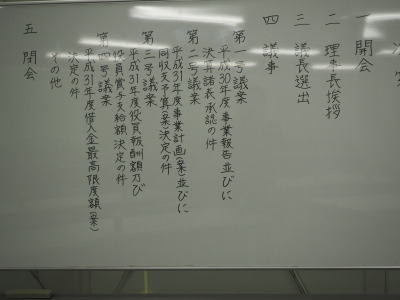 次第
一 開会
二 理事長挨拶
三 議長選出
四 議事
第一号議案
平成30年度事業報告並びに
決算諸表承認の件
第二号議案
平成31年度事業計画(案)並びに
同収支予算(案)決定の件
第三号議案
平成31年度役員報酬額及び
役員賞与支給額決定の件
第四号議案
平成31年度借入金最高限度額(案)
決定の件
その他
五 閉会